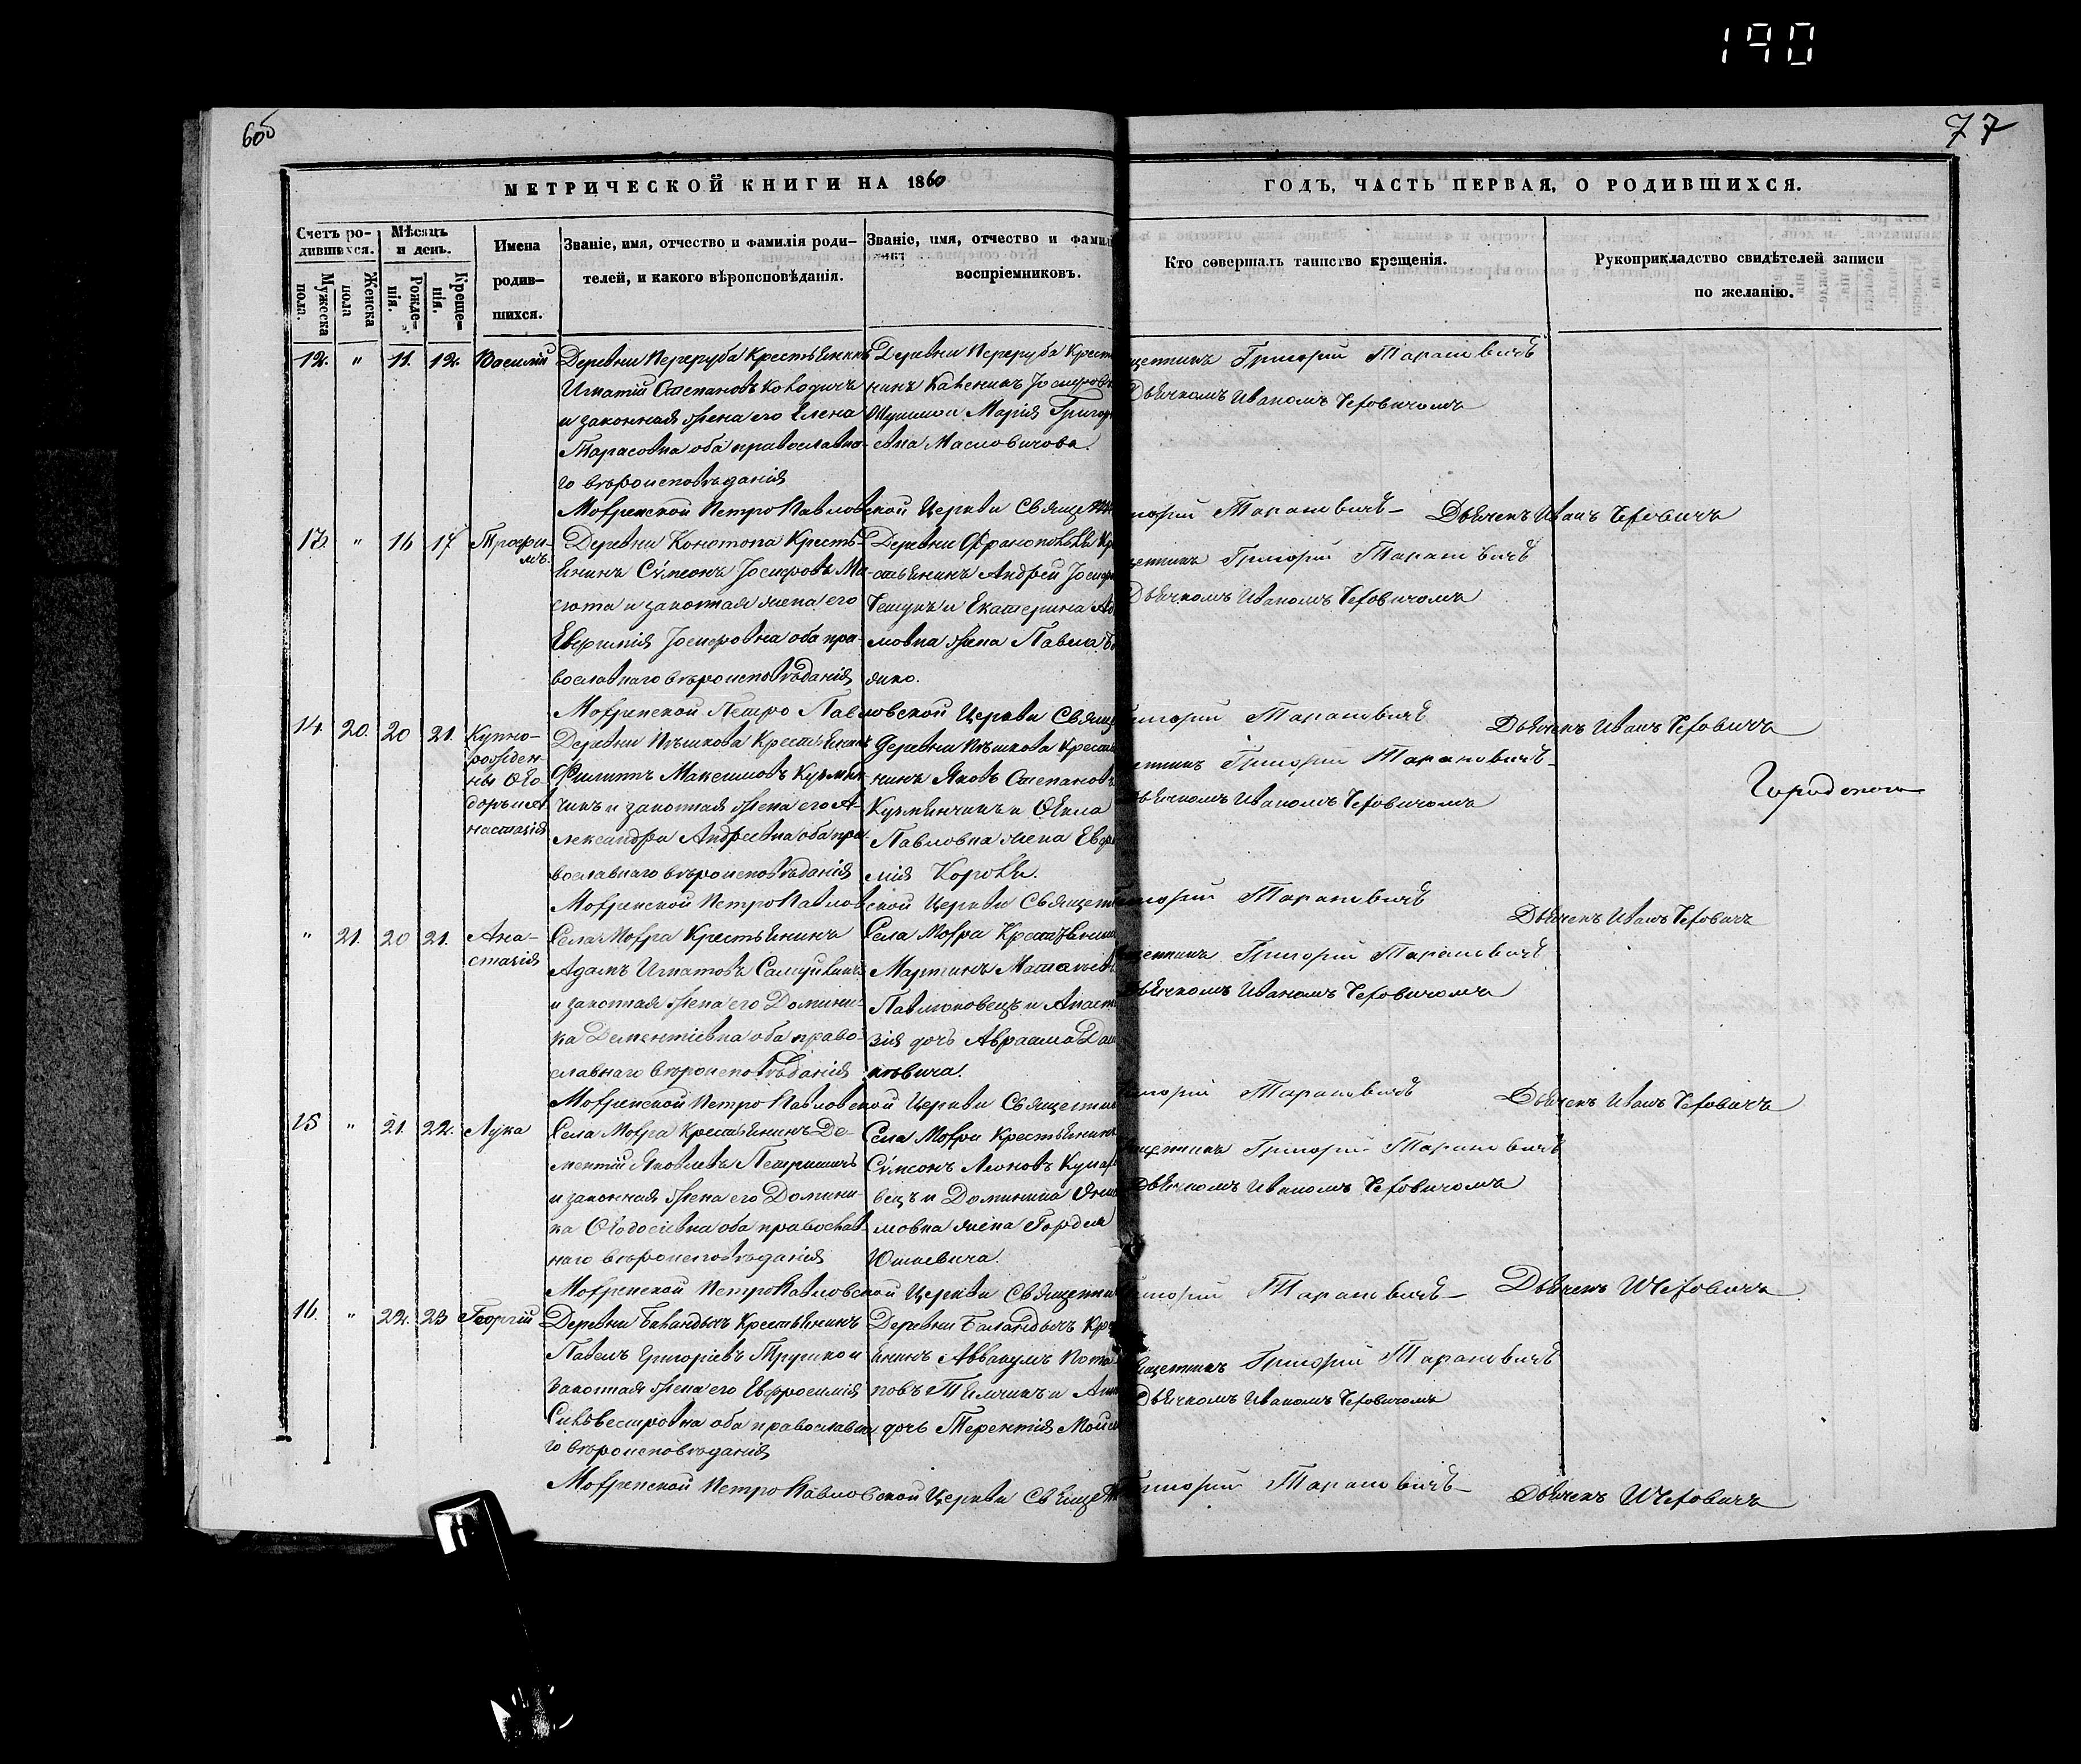 190
60б
77
МЕТРИЧЕСКОЙ КНИГИ НА 1860
ГОДЪ, ЧАСТЬ ПЕРВАЯ, О РОДИВШИХСЯ.
Счетъ ро-
дившихся.
Мужеска
пола.
Женска
пола
Мѣсяцъ
и день.
Рожде-
нія.
Креще-
нія.
Имена
родив-
шихся.
Званіе, имя, отчество и фамилія роди-
телей, и какого вѣроисповѣданія.
Званіе, имя, отчество и фамил
воспріемниковъ.
Кто совершалъ таинство крещенія.
Рукоприкладство свидѣтелей записи
по желанію.
12. " 11. 12. Василій
Деревни Переруба Крестьянинъ
Игнатій Степановъ Колодичъ
и законная жена его Елена
Тарасовна оба православна-
го вѣроисповѣданія
Деревни Переруба Крестья
нинъ Каленикъ Іосифовъ
и Марія Григорь
евна Масловичова.
щенникъ Григорій Тарановичъ
Дьячкомъ Иваномъ Чеховичомъ
Мохренской ПетроПавловской Церкви Священ
горій Тарановичъ Дьячекъ Иванъ Чеховичъ
13. " 16 17 Трофи-
мъ.
Деревни Конотопа Кресть-
янинъ Сѵмеонъ Іосифовъ Ма-
сюта и законная жена его
Евфимія Іосифовна оба пра-
вославнаго вѣроисповѣданія
Кр
стьянинъ Андрей Іосиф
и Екатерина Ада
мовна жена Павла
енко.
щенникъ Григорій Тарановичъ
Дьячкомъ Иваномъ Чеховичомъ
Мохренской Петро Павловской Церкви Свящ
игорій Тарановичъ Дьячекъ Иванъ Чеховичъ
14. 20. 20 21. Купно-
рожден-
ны Ѳео-
доръ и А
настасія
Деревни Пѣшкова Крестьянинъ
Филиппъ Максимовъ Кузмин-
чикъ и законная жена его А-
лександра Андреевна оба пра-
вославнаго вѣроисповѣданія
Деревни Пѣшкова Крестья
нинъ Яковъ Степановъ
Кузминчикъ и Ѳекла
Павловна жена Евфи
мія Коровки.
щенникъ Григорій Тарановичъ
Дьячкомъ Иваномъ Чеховичомъ
Мохренской ПетроПавловской Церкви Священ
игорій Тарановичъ
Дьячекъ Иванъ Чеховичъ
" 21. 20 21. Ана-
стасія
Села Мохра Крестьянинъ
Адамъ Игнатовъ
и законная жена его Домини-
ка Дементіевна оба право-
славнаго вѣроисповѣданія
Села Мохра Крестьянинъ
Мартинъ
Павлюковецъ и Анаст
зія дочь Авраама Даш
кевича.
щенникъ Григорій Тарановичъ
Дьячкомъ Иваномъ Чеховичомъ
Мохренской ПетроПавловской Церкви Священник
игорій Тарановичъ Дьячекъ Иванъ Чеховичъ
15 " 21. 22. Лука
Села Мохра Крестьянинъ Де-
ментій Яковлевъ Петришичъ
и законная жена его Домини-
ка Ѳеодосіевна оба православ
наго вѣроисповѣданія
Села Мохра Крестьянинъ
Сѵмеонъ Леоновъ
вецъ и Доминика Яки
мовна жена Гордея
Юшкевича.
щенникъ Григорій Тарановичъ
Дьячкомъ Иваномъ Чеховичомъ
Мохренской ПетроПавловской Церкви Священни
игорій Тарановичъ Дьячекъ ИЧеховичъ
16. " 22. 23 Георгій
Деревни Баландычъ Крестьянинъ
Павелъ Григоріевъ Трушко и
законная жена его Евфросинія
Силвестровна оба православна
го вѣроисповѣданія
Деревни Баландычъ Кре
янинъ Аввакумъ Пота
повъ и Анн
дочь Терентія
щенникъ Григорій Тарановичъ
Дьячкомъ Иваномъ Чеховичомъ
Мохренской ПетроПавловской Церкви Священ
игорій Тарановичъ Дьячекъ ИЧеховичъ